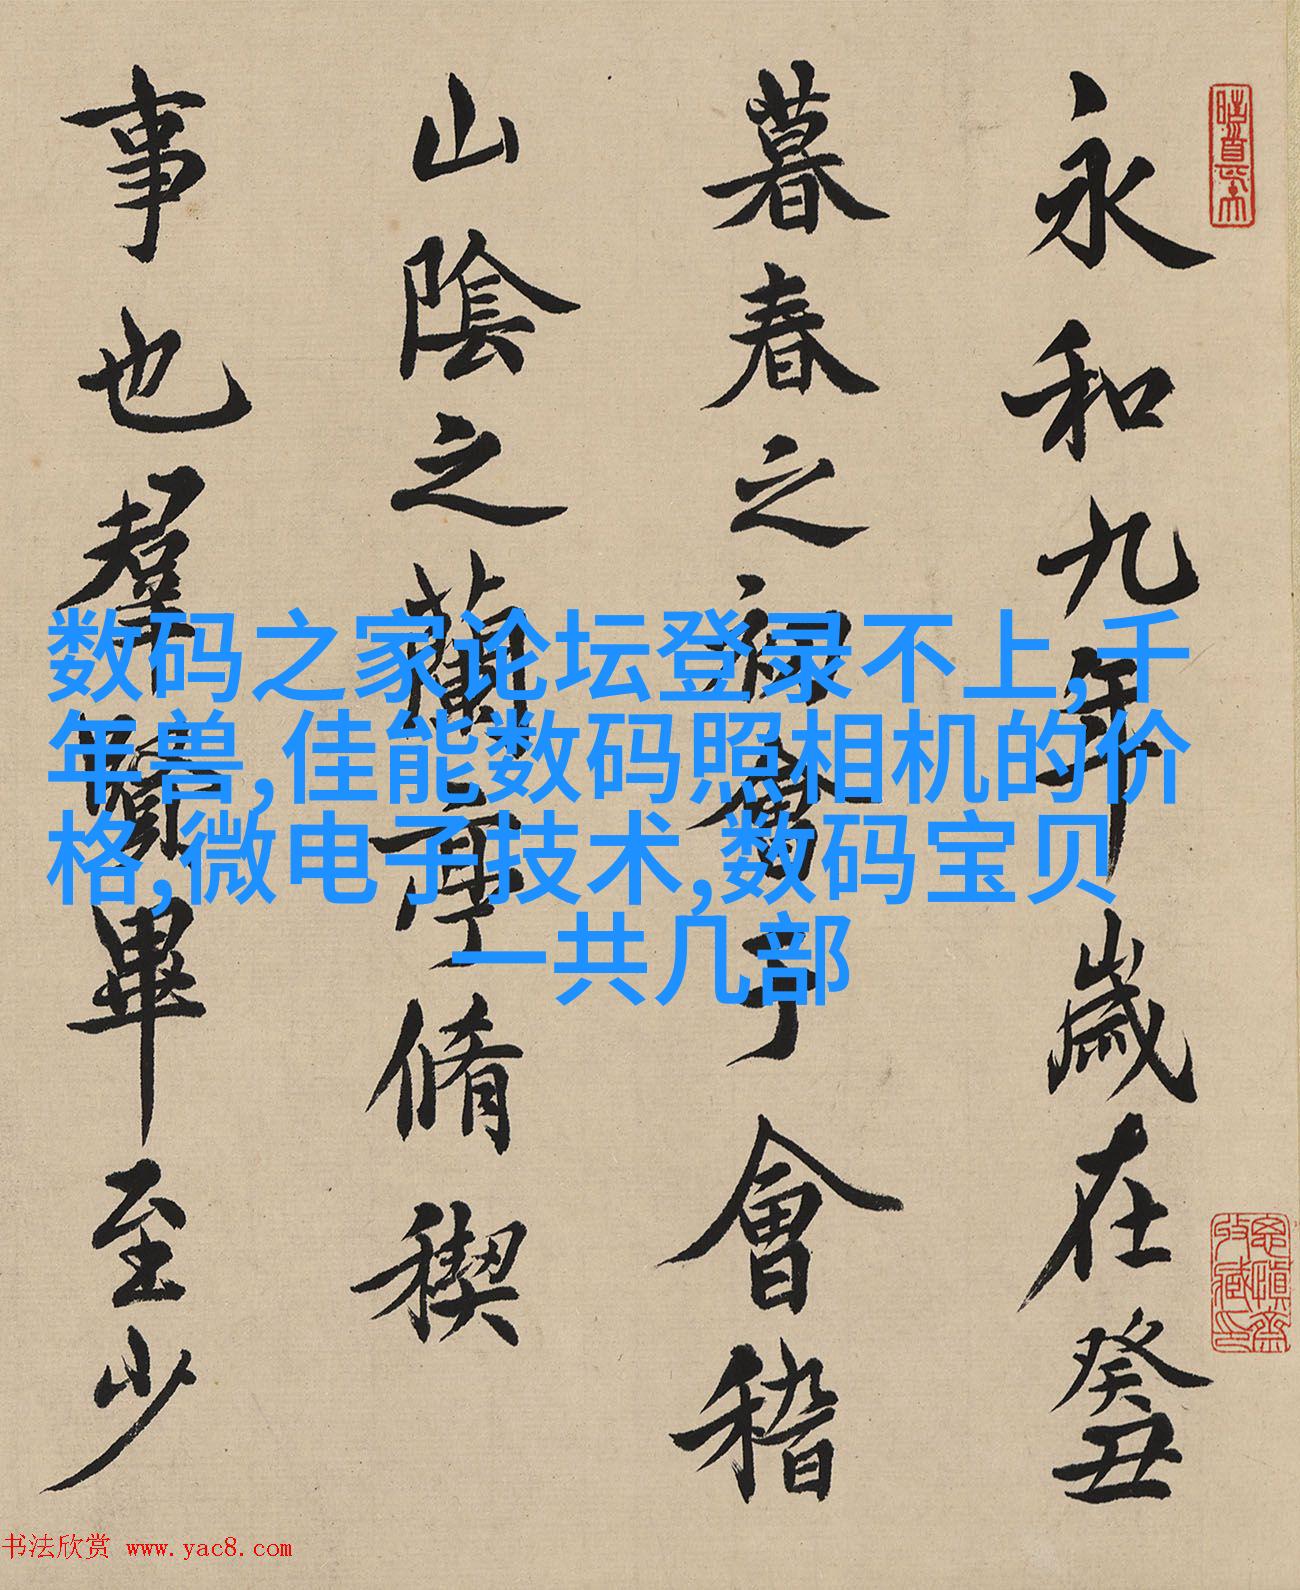 永和九年歲在癸丑
暮春之初會于會稽
山陰之蘭亭脩稧
事也羣賢畢至少
数码之家论坛登录不上,千
年兽,佳能数码照相机的价
格,微电子技术,数码宝贝
一共几部
书法欣赏 www.yac8.com